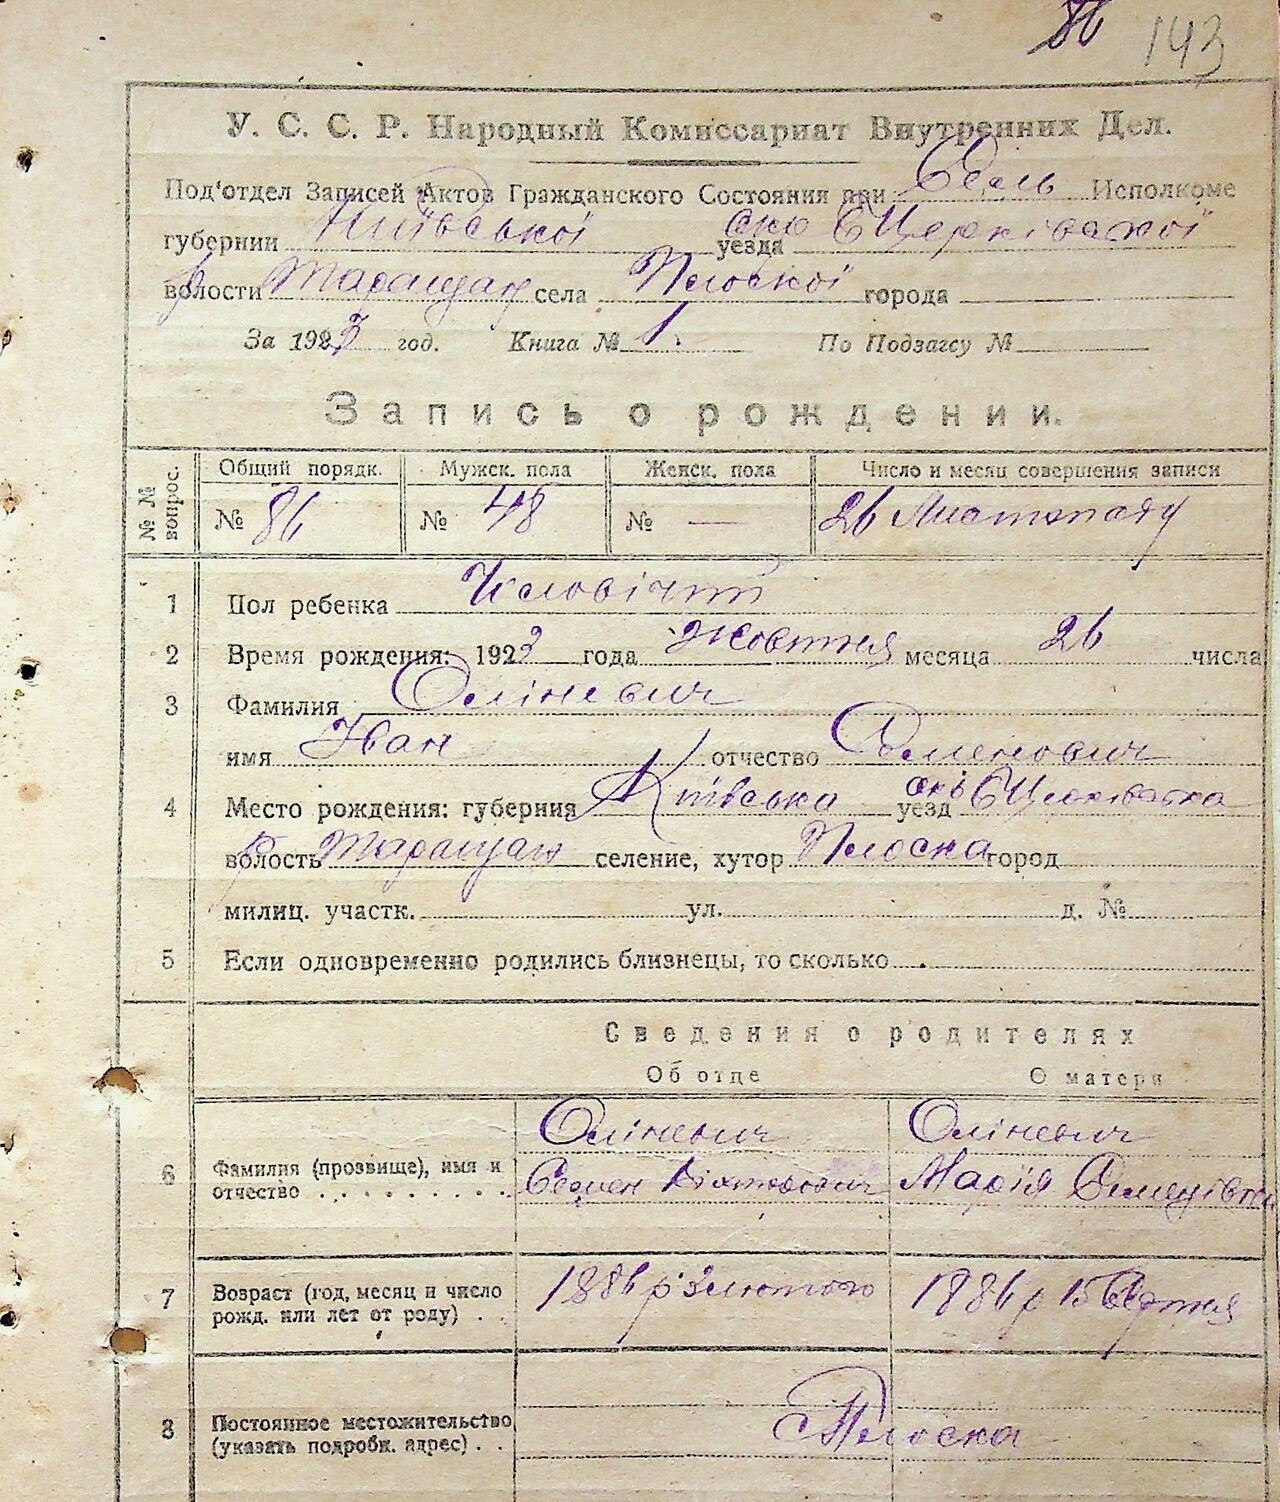 86 143
У. С. С. Р. Народный Комиссариат Внутренних Дел.
Под'отдел Записей Актов Гражданского Состояния при Сель Исполкоме
губернии Київської уезда окр БЦерківської
волости р Таращан села Плоской города
За 1923 год. Книга № 1. По Подзагсу №
Запись о рождении.
№ № вопрос. Общий порядк. Мужск. пола Женск. пола Число и месяц совершения записи
№ 86 № 48 № — 26 Листопаду
1 Пол ребенка Чоловічий
2 Время рождения: 1923 года Жовтня месяца 26 числа
3 Фамилия Оліневич
имя Іван отчество Семенович
4 Место рождения: губерния Київська уезд окр БЦерківська
волость р Таращан селение, хутор Плоска город
милиц. участк. ул. д. №
5 Если одновременно родились близнецы, то сколько
Сведения о родителях
Об отце О матери
Оліневич Оліневич
6 Фамилия (прозвище), имя и отчество Семен Вікторович Марія Семенівна
7 Возраст (год, месяц и число рожд. или лет от роду) 1886 р 3 лютого 1886 р 15
8 Постоянное местожительство (указать подробн. адрес) Плоска